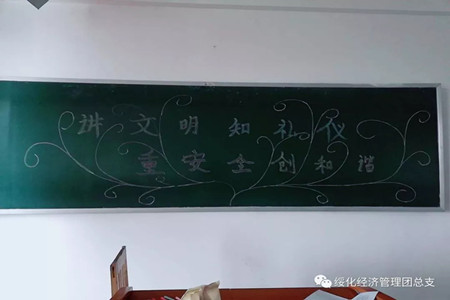 讲文明知礼仪
重安全创和谐
绥化经济管理团总支